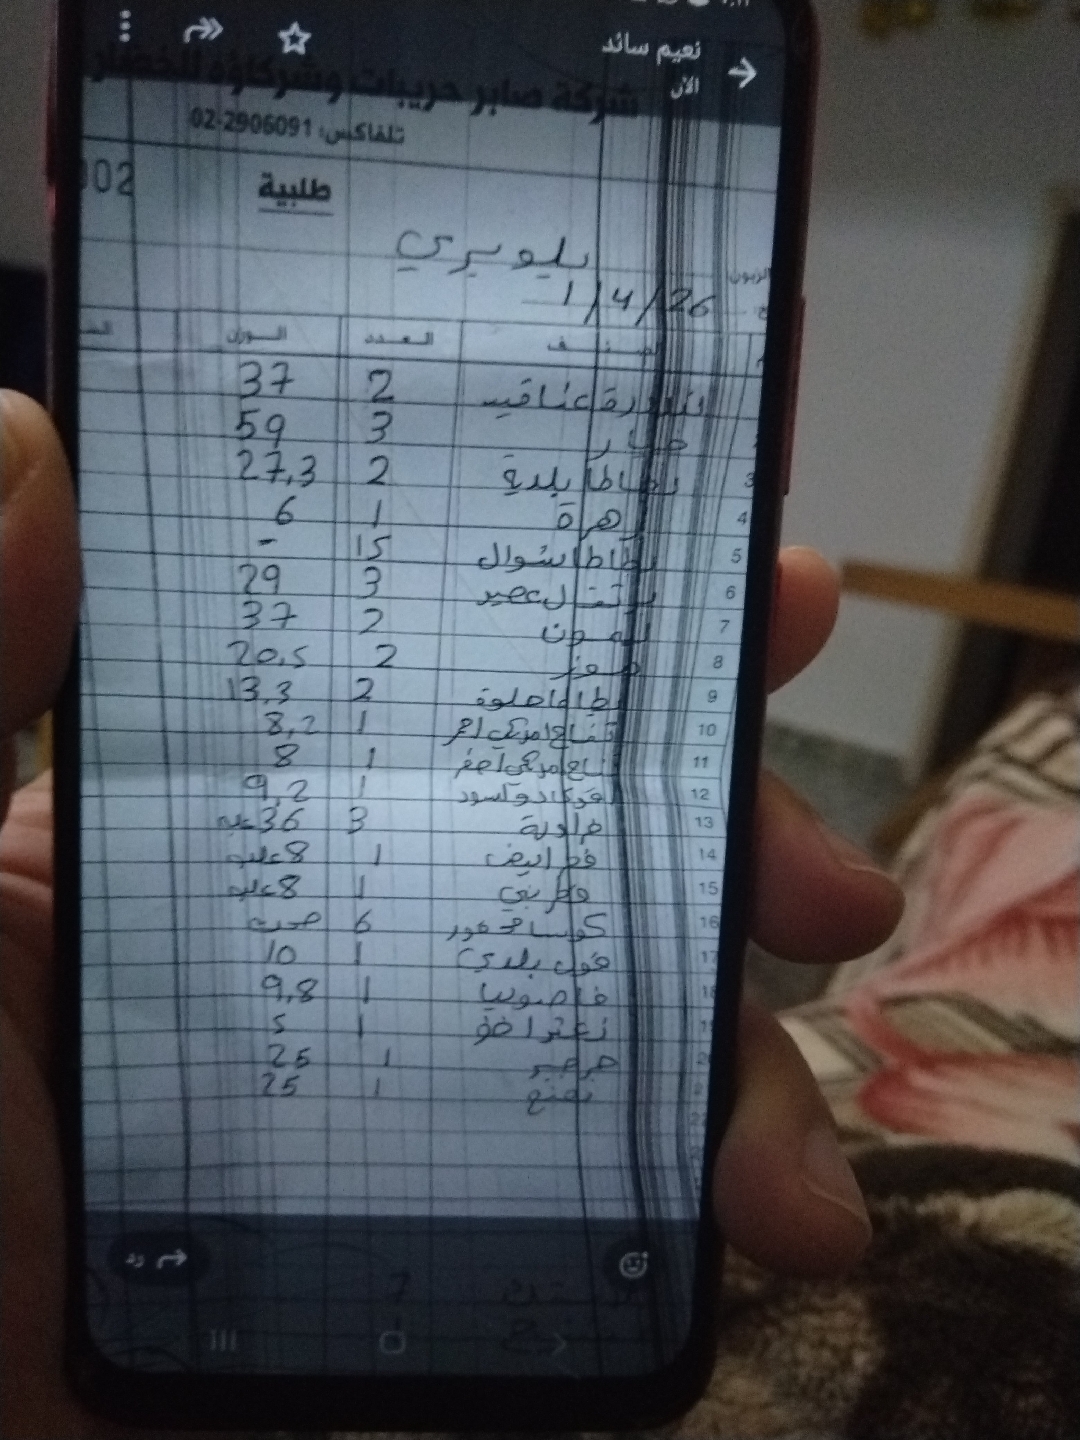 نعيم سائد
الآن
شركة صابر حريبات وشركاؤه للخضار
تلفاكس: 02-2906091
002
طلبية
الزبون بلوبيري
1/4/26
الصنف العدد الوزن
بندورة عناقيد 2 37
خيار 3 59
3 بطاطا بلدية 2 27,3
4 زهرة 1 6
5 بطاطا شوال 15 -
6 برتقال عصير 3 29
7 ليمون 2 37
8 موز 2 20,5
9 بطاطا حلوة 2 13,3
10 تفاح امريكي احمر 1 8,2
11 تفاح امريكي اصفر 1 8
12 افوكادو اسود 1 9,2
13 فراولة 3 36 علبة
14 فطر ابيض 1 8 علب
15 فطر بني 1 8 علب
16 كوسا محفور 6 صحن
17 فول بلدي 1 10
18 فاصوليا 1 9,8
19 زعتر اخضر 1 5
جرجير 1 25
نعنع 1 25
رد
7